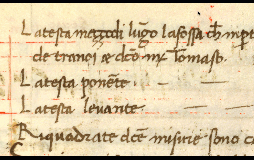 Latesta mezzodi lūgo lafossa ch̄ np̄t
de tranci æ dcō mr̄ Tomaso.
Latesta ponēte.
Latesta levante.
Riquadrate dcē misure sono c